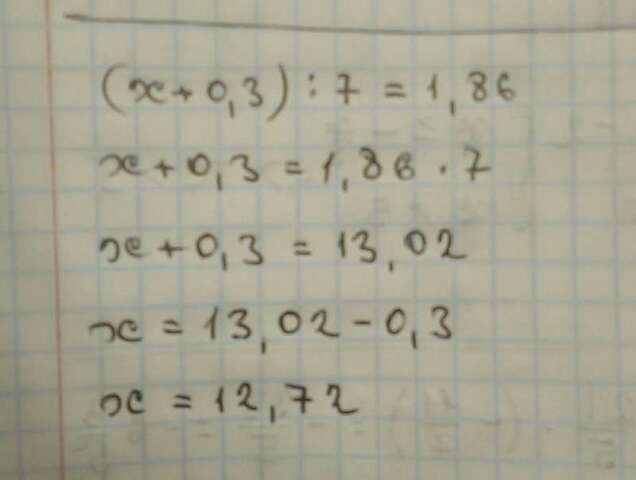 (x+0,3):7=1,86
x+0,3=1,86·7
x+0,3=13,02
x=13,02-0,3
x=12,72